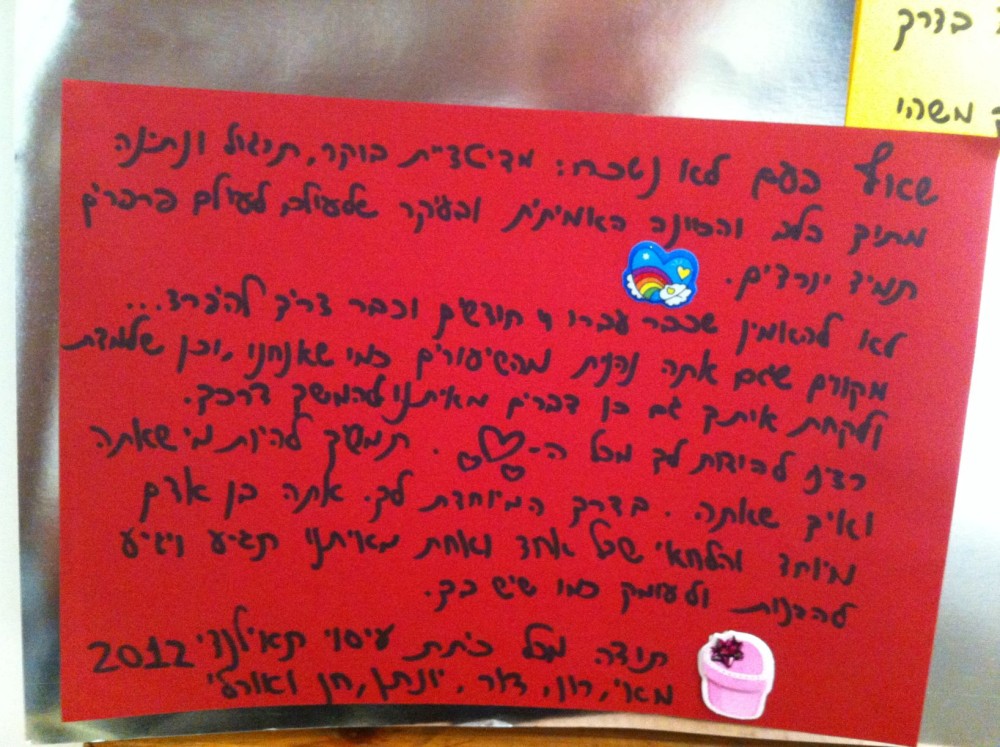 בדרך
משהו
שאף פעם לא נשכח: מדיטציית בוקר, תרגול ונתינה
מתוך הלב והכוונה האמיתית ובעיקר שלעולם לעולם פרפרים
תמיד יורדים.
לא להאמין שכבר עברו 4 חודשים וכבר צריך להיפרד...
מקווים שגם אתה נהנית מהשיעורים כמו שאנחנו, וכן שלמדת
ולקחת איתך גם כן דברים מאיתנו להמשך דרכך.
רצינו להודות לך מכל ה-♡. תמשיך להיות מי שאתה
ואיך שאתה. בדרך המיוחדת לך. אתה בן אדם
מיוחד והלוואי שכל אחד ואחת מאיתנו תגיע ויגיע
להבנות ולעומק כמו שיש בך.
תודה מכל כיתת עיסוי תאילנדי 2012
מאי, רון, דור, יונתן, חן ואורלי